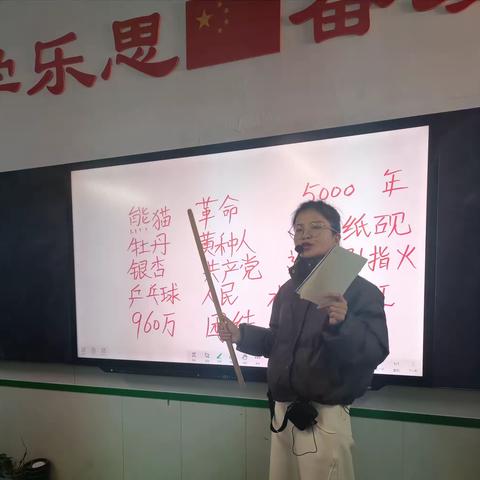 乐思 奋
熊猫 革命 5000年
牡丹 黄种人 纸砚
银杏 共产党 指火
乒乓球 人民
960万 团结